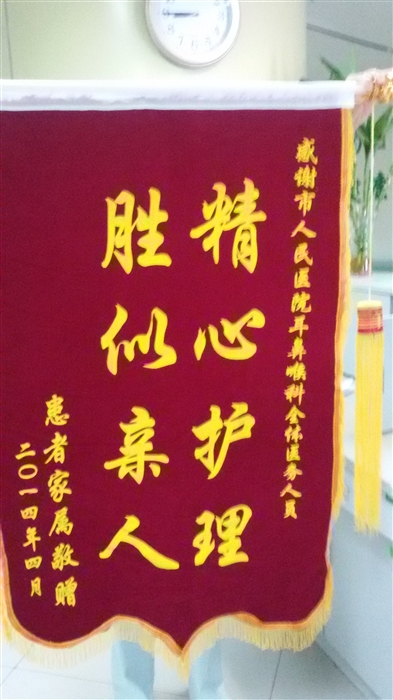 感谢市人民医院耳鼻喉科全体医务人员
精心护理
胜似亲人
患者家属敬赠
二〇一四年四月